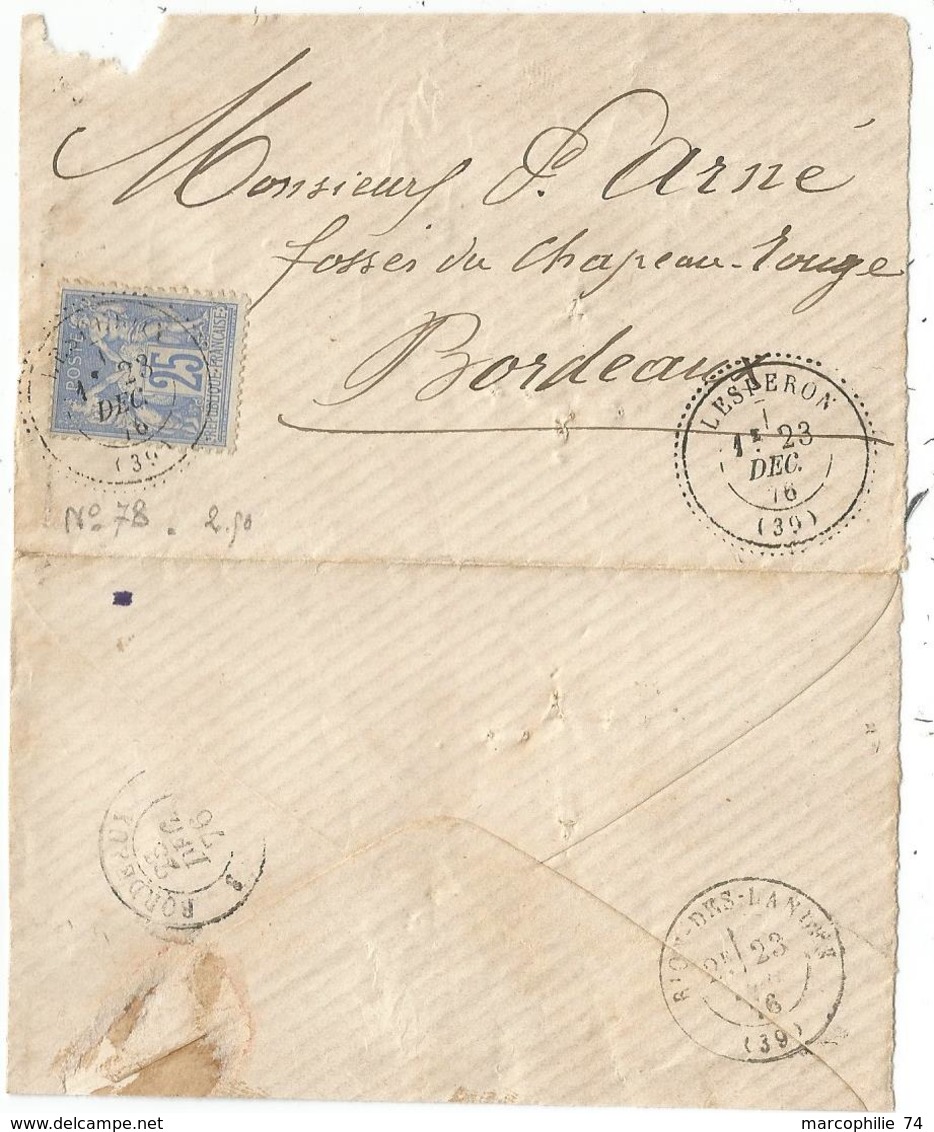 Monsieur P. Arné
fossés du Chapeau-Rouge
Bordeaux
POSTE
25
REPUBLIQUE FRANÇAISE
23
DEC.
76
(39)
LESPERON
1
1E 23
DEC.
76
(39)
No 78. 2.50
BORDEAUX
23
DEC
76
RION-DES-LANDES
2E 23
76
(39)
marcophilie 74